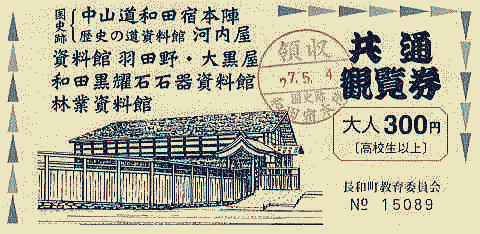 国史跡 中山道和田宿本陣
歴史の道資料館 河内屋
資料館 羽田野・大黒屋
和田黒耀石石器資料館
林業資料館
領収
27.5.4
国史跡
共通
観覧券
大人 300円
〔高校生以上〕
長和町教育委員会
№ 15089